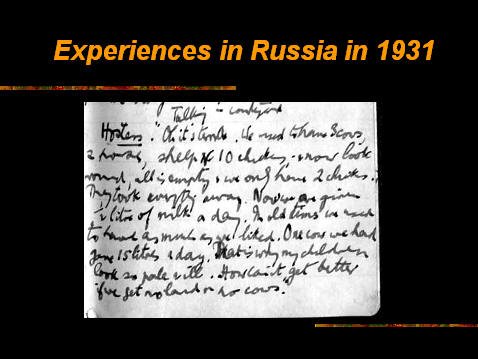 Experiences in Russia in 1931
Talking in courtyard
Hostess. "Oh it's terrible. We used to have 3 cows,
2 horses, sheep & 10 chickens, & now look
round, all is empty & we only have 2 chicks.
They took everything away. Now we are given
½ litre of milk a day. In old times we used
to have as much as we liked. One cow we had
gave 15 litres a day. That is why my children
look so pale & ill. How can it get better
if we've got no land or no cows."